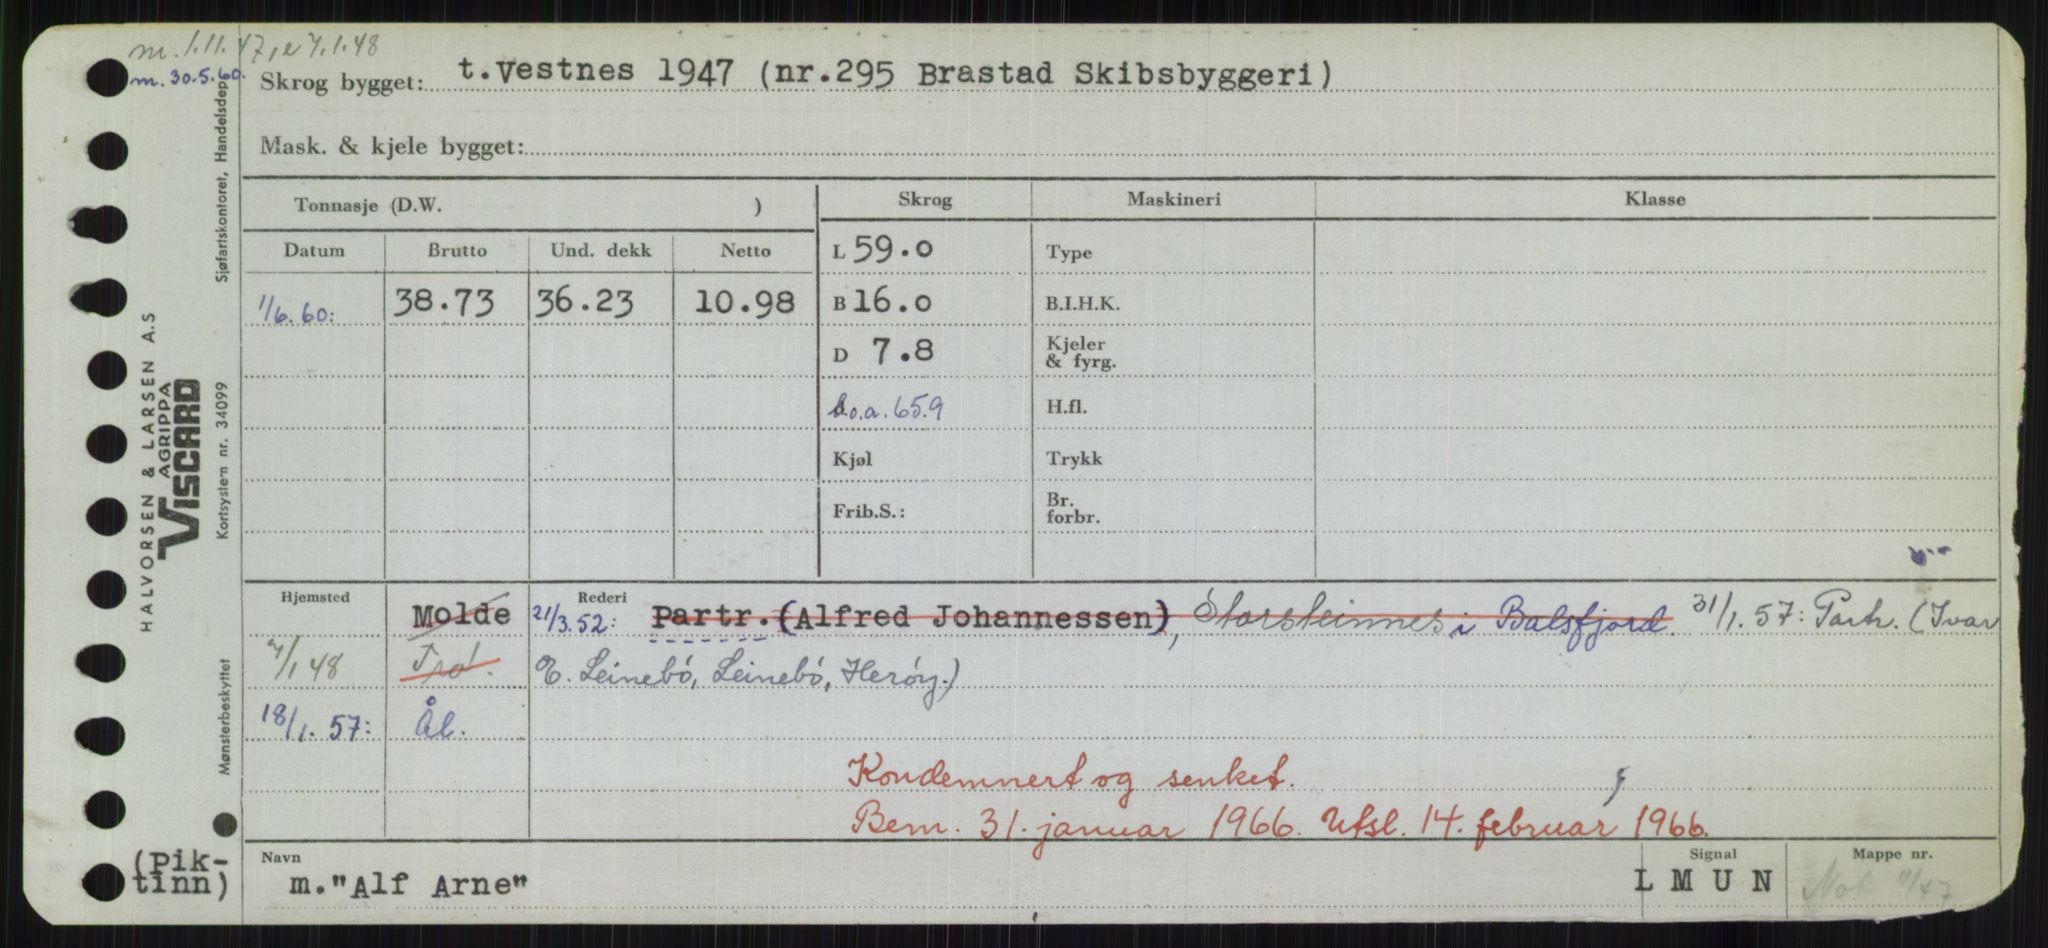 m. 1.11.47, e 7.1.48
m. 30.5.60.
Skrog bygget: t.Vestnes 1947 (nr.295 Brastad Skibsbyggeri)
Mask. & kjele bygget:
Tonnasje (D.W. ) Skrog Maskineri Klasse
Datum Brutto Und. dekk Netto L 59.0 Type
1/6.60: 38.73 36.23 10.98 B 16.0 B.I.H.K.
D 7.8 Kjeler & fyrg.
l.o.a. 65.9 H.fl.
Kjøl Trykk
Frib.S.: Br. forbr.
Hjemsted Rederi
Molde 21/3.52: Partr. (Alfred Johannessen), Storsteinnes i Balsfjord. 31/1.57: Partr. (Ivar
7/1 48 Trd. E. Leinebö, Leinebö, Heröy.)
18/1.57: Ål.
Kondemnert og senket.
Bem. 31. januar 1966. Utsl. 14. februar 1966.
Navn Signal Mappe nr.
(Pik-
tinn) m."Alf Arne" L M U N Not 11/47
HALVORSEN & LARSEN A.S
AGRIPPA
VISCARD
Sjøfartskontoret, Handelsdep.
Kortsystem nr. 34099
Mønsterbeskyttet